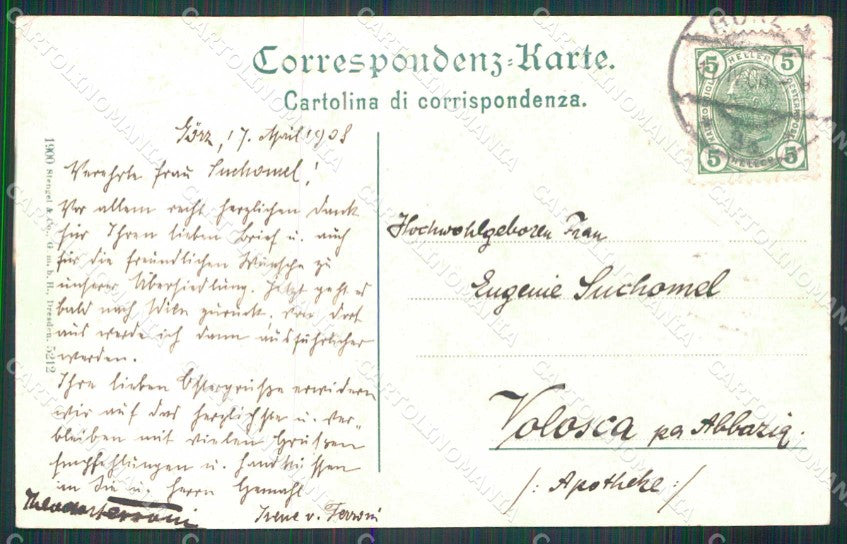 Correspondenz-Karte.
Cartolina di corrispondenza.
5 HELLER 5
5 HELLER 5
Görz, 17. April 1908
Verehrte Frau Suchomel!
Vor allem recht herzlichen Dank
für Ihren lieben Brief u. auch
für die freundlichen Wünsche zu
unserer Übersiedlung. Jetzt geht es
bald nach Wien zurück. Von dort
aus werde ich dann ausführlicher
werden.
Ihre lieben Ostergrüße erwidern
wir auf das herzlichste u. ver-
bleiben mit vielen Grüßen
Empfehlungen u. Handküssen
an Sie u. Herrn Gemahl
Irene v. Ferroni
Hochwohlgeboren Frau
Eugenie Suchomel
Volosca pa Abbazia.
/: Apotheke :/
1900 Stengel & Co., G. m. b. H., Dresden. 5212
CARTOLINOMANIA